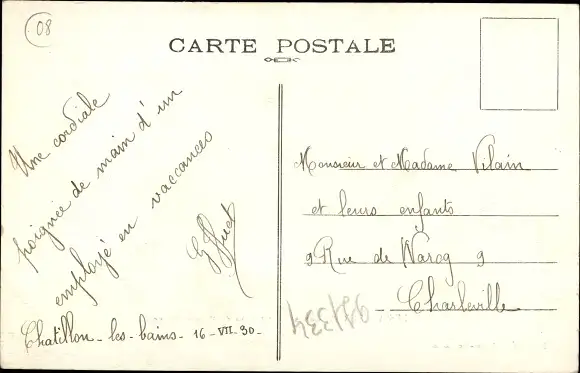 08
CARTE POSTALE
Une cordiale
poignée de main d'un
employé en vaccances
GHuet
Chatillon-les-bains- 16-VII-30-
Monsieur et Madame Vilain
et leurs enfants
9 Rue de Waroq 9
Charleville
92/334